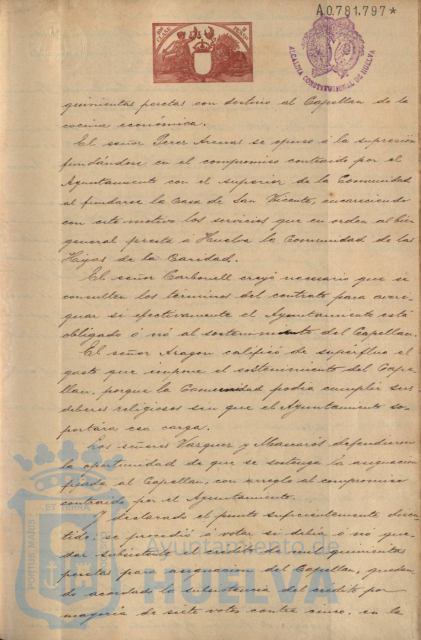 A0.781.797*
ALCALDIA CONSTITUCIONAL DE HUELVA
quinientas pesetas con destino al Capellan de la
cocina económica.
El señor Perez Arenas se opuso á la supresión
fundándose en el compromiso contraido por el
Ayuntamiento con el superior de la Comunidad
al fundarse la Casa de San Vicente, encareciendo
con este motivo los servicios que en orden al bien
general presta á Huelva la Comunidad de las
Hijas de la Caridad.
El señor Carbonell creyó necesario que se
consulten los terminos del contrato para averi-
guar si efectivamente el Ayuntamiento está
obligado ó nó al sostenimiento del Capellan.
El señor Aragon calificó de supérfluo el
gasto que impone el sostenimiento del Cape-
llan, porque la Comunidad podia cumplir sus
deberes religiosos sin que el Ayuntamiento so-
portára esa carga.
Los señores Vazquez y Mascarós defendieron
la oportunidad de que se sostenga la asignacion
fijada al Capellan, con arreglo al compromiso
contraido por el Ayuntamiento.
Y declarado el punto suficientemente discu-
tido, se procedió á votar si debia ó nó que-
dar subsistente el crédito de mil quinientas
pesetas para asignacion del Capellan, quedan-
do acordado la subsistencia del credito por
mayoria de siete votos contra cinco, en la
PORTUS MARIS
ET TERRAE
Ayuntamiento de
HUELVA